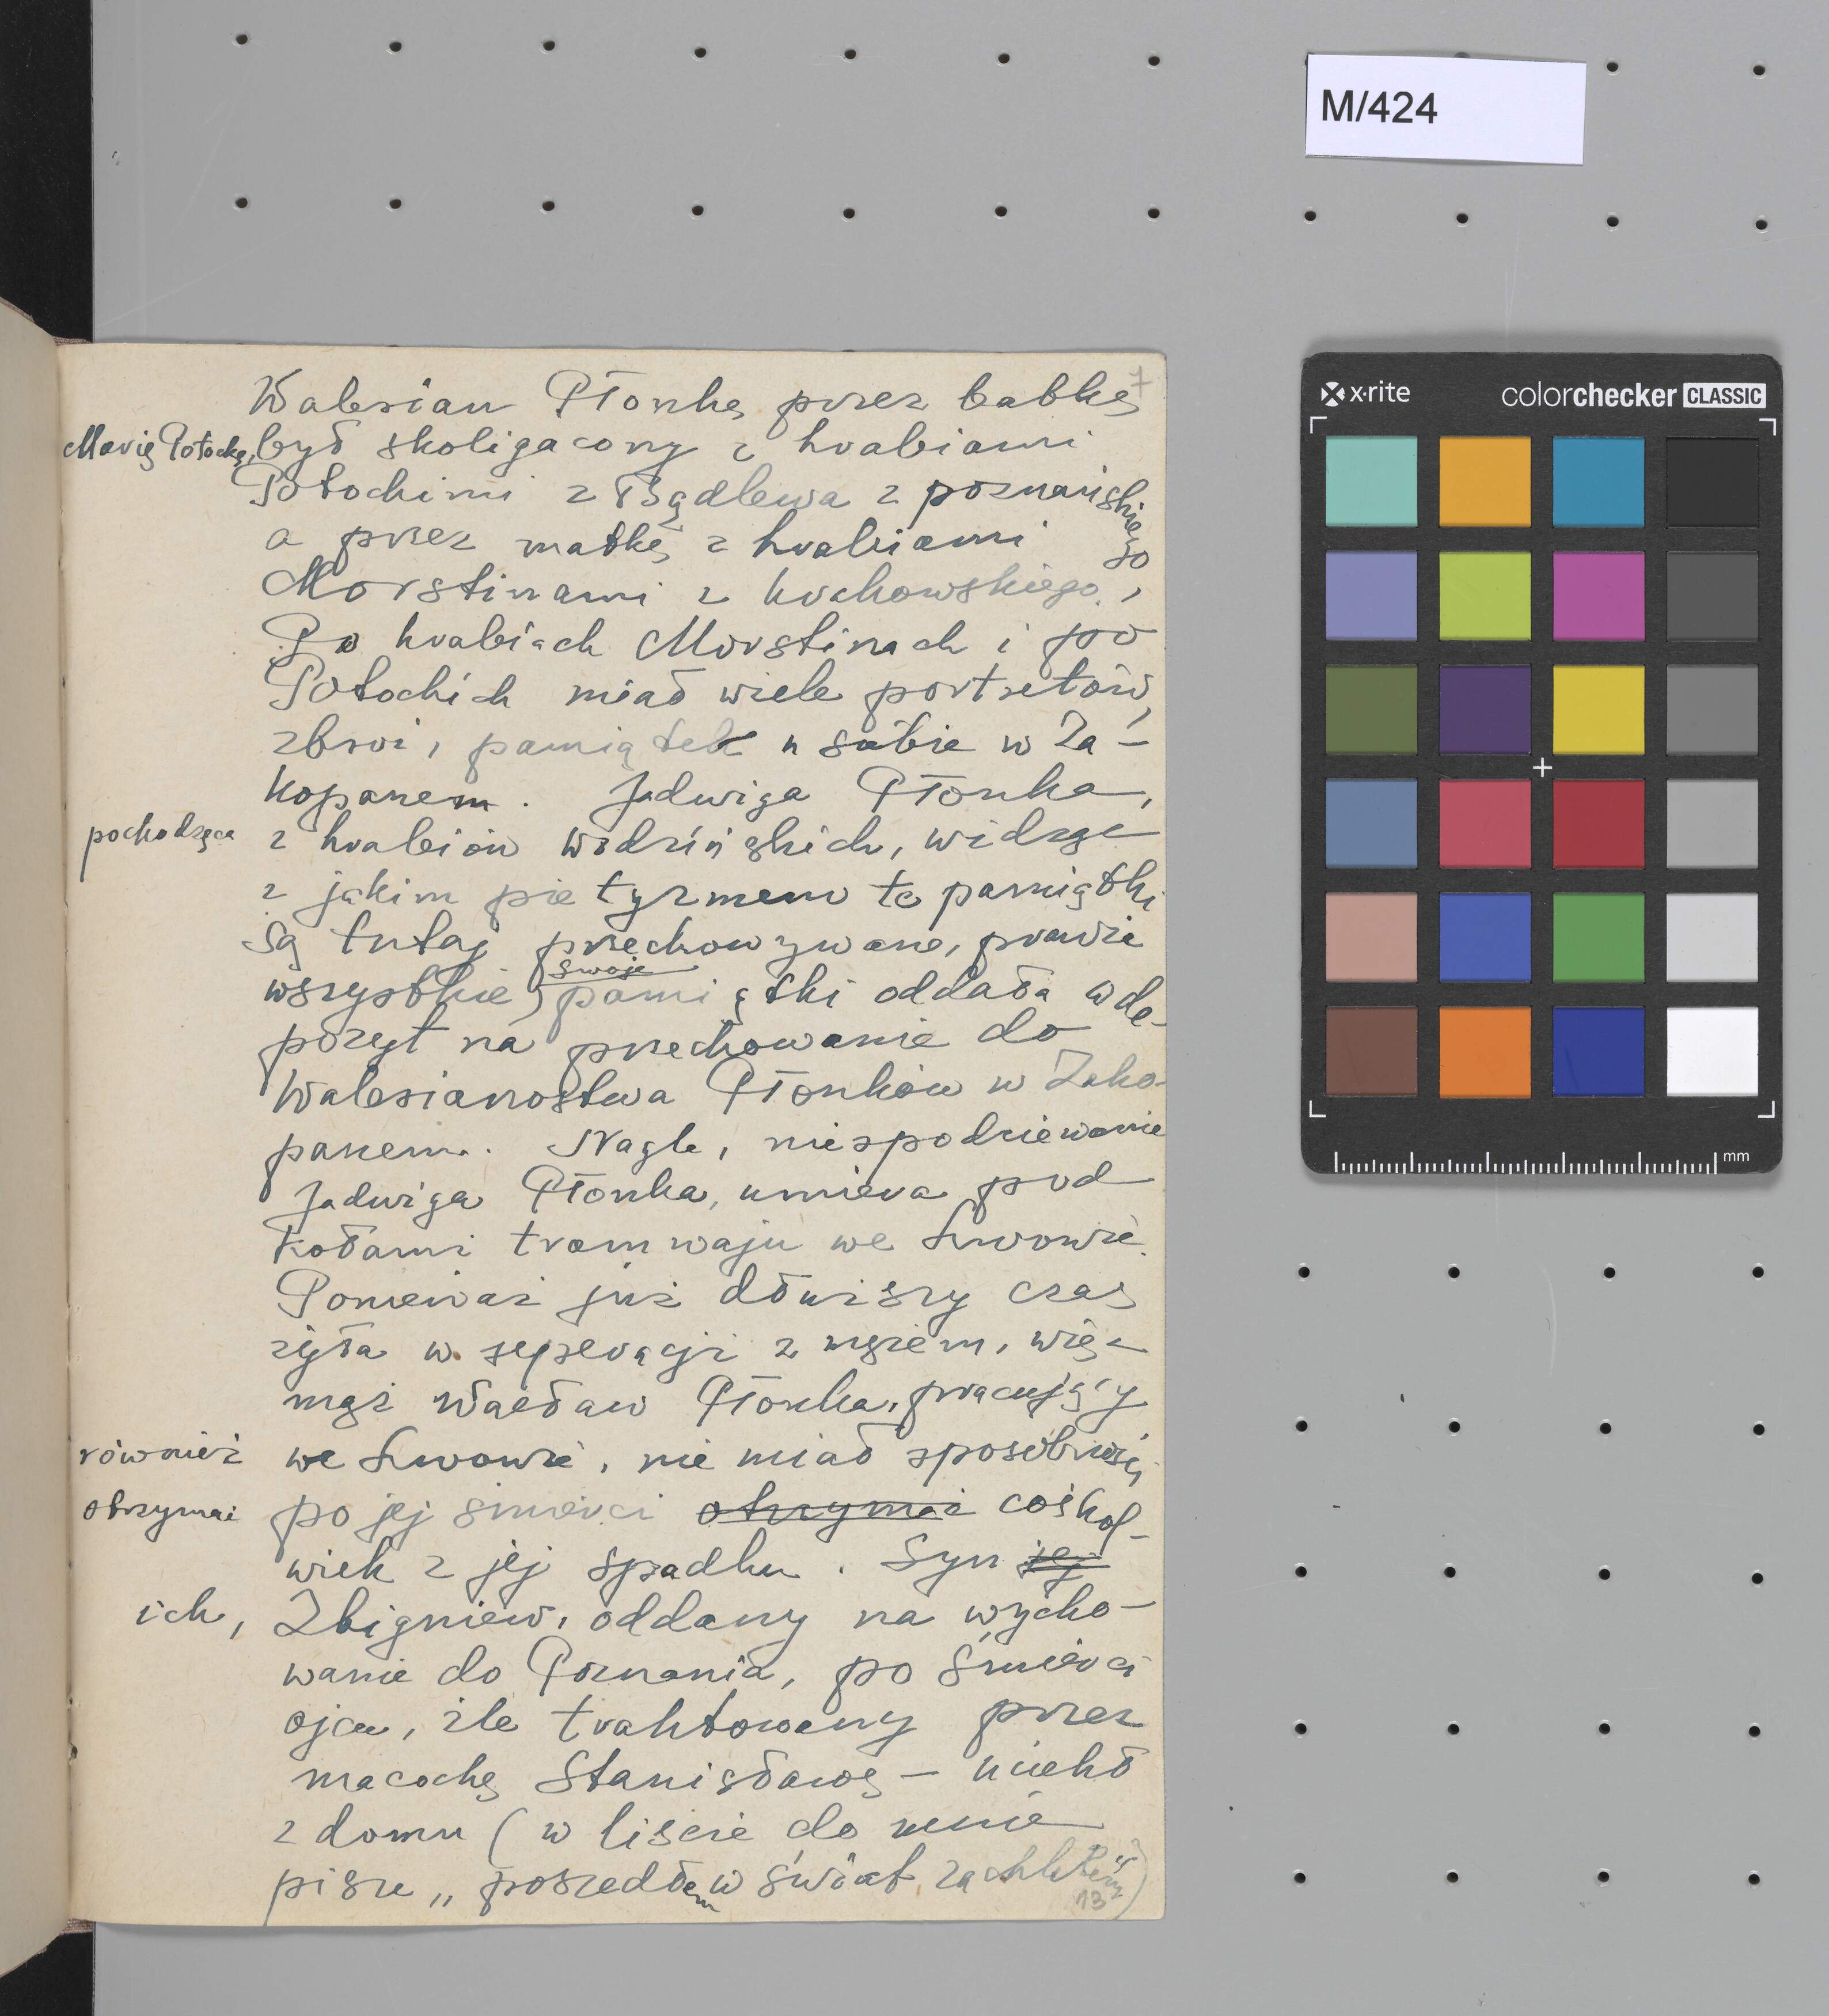 M/424
x·rite colorchecker CLASSIC
mm
7
Walerian Płonka przez babkę
Marię Potocką, był skoligacony z hrabiami
Potockimi z Będlewa z poznańskiego
a przez matkę z hrabiami
Morstinami z krakowskiego,
Po hrabiach Morstinach i po
Potockich miał wiele portretów,
zbroi, pamiątek u siebie w Za-
kopanem. Jadwiga Płonka,
pochodząca z hrabiów Wodzińskich, widząc
z jakim pietyzmem te pamiątki
są tutaj przechowywane, prawie
wszystkie swoje pamiątki oddała w de-
pozyt na przechowanie do
Walerianostwa Płonków w Zako-
panem. Nagle, niespodziewanie
Jadwiga Płonka, umiera pod
kołami tramwaju we Lwowie.
Ponieważ już dłuższy czas
żyła w seperacji z mężem, więc
mąż Wacław Płonka, pracujący
również we Lwowie, nie miał sposobności
otrzymać po jej śmierci otrzymać cośkol-
wiek z jej spadku. Syn jej
ich, Zbigniew, oddany na wycho-
wanie do Poznania, po śmierci
ojca, źle traktowany przez
macochę Stanisławę – uciekł
z domu (w liście do mnie
pisze „poszedłem w świat za chlebem")
13